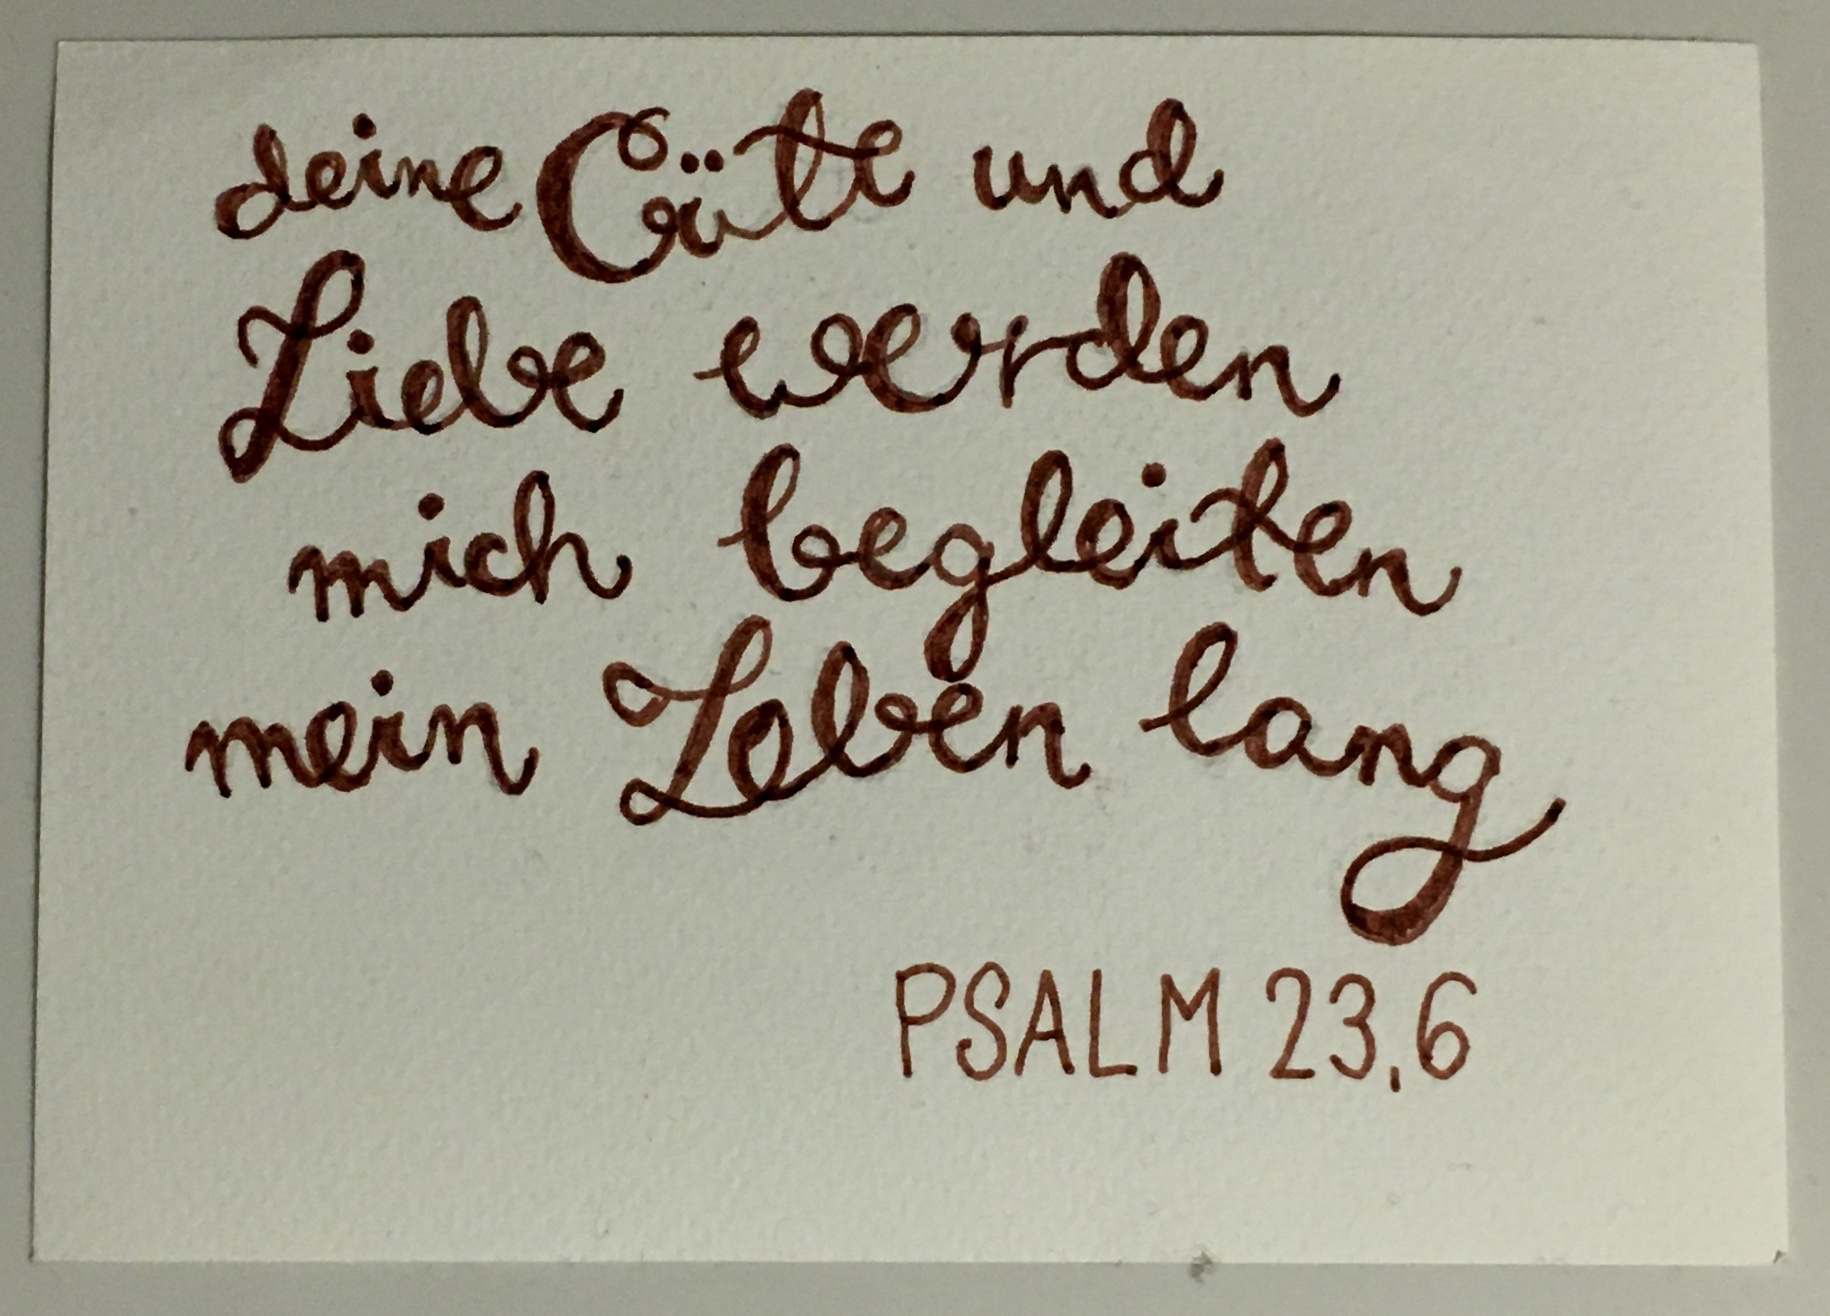 deine Güte und
Liebe werden
mich begleiten
mein Leben lang
PSALM 23,6